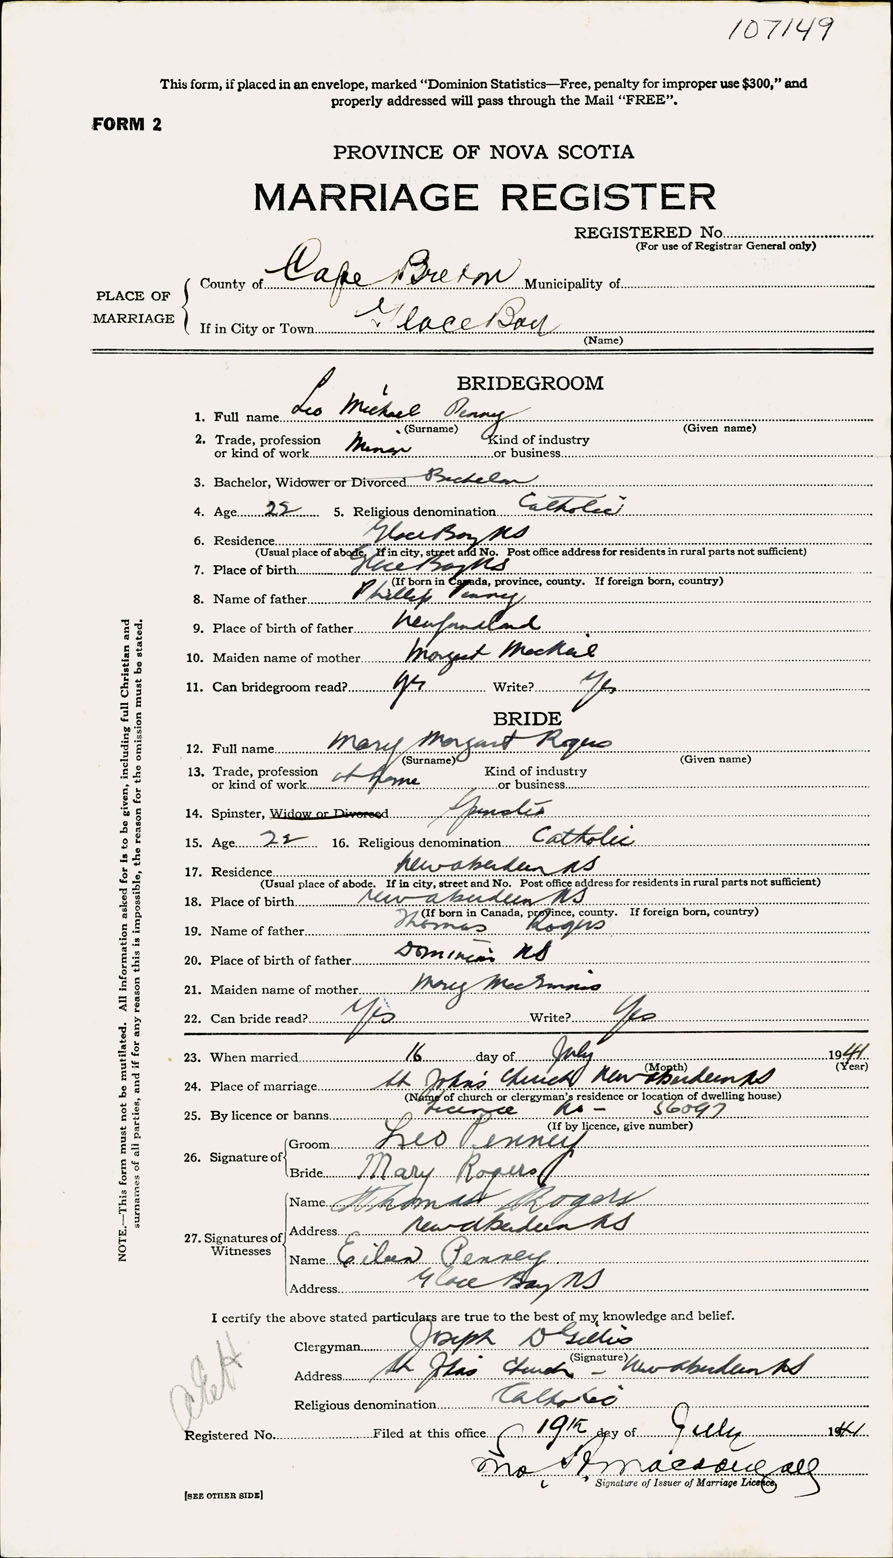 107149
This form, if placed in an envelope, marked “Dominion Statistics—Free, penalty for improper use $300,” and
properly addressed will pass through the Mail “FREE”.
FORM 2
PROVINCE OF NOVA SCOTIA
MARRIAGE REGISTER
REGISTERED No.
(For use of Registrar General only)
PLACE OF MARRIAGE
County of Cape Breton Municipality of
If in City or Town Glace Bay
(Name)
BRIDEGROOM
1. Full name Leo Michael Penny
(Surname) (Given name)
2. Trade, profession or kind of work Miner Kind of industry or business
3. Bachelor, Widower or Divorced Bachelor
4. Age 22 5. Religious denomination Catholic
6. Residence Glace Bay NS
(Usual place of abode. If in city, street and No. Post office address for residents in rural parts not sufficient)
7. Place of birth Glace Bay NS
(If born in Canada, province, county. If foreign born, country)
8. Name of father Phillip Penny
9. Place of birth of father Newfoundland
10. Maiden name of mother Margaret MacNeil
11. Can bridegroom read? Yes Write? Yes
BRIDE
12. Full name Mary Margaret Rogers
(Surname) (Given name)
13. Trade, profession or kind of work at home Kind of industry or business
14. Spinster, Widow or Divorced Spinster
15. Age 22 16. Religious denomination Catholic
17. Residence New Aberdeen NS
(Usual place of abode. If in city, street and No. Post office address for residents in rural parts not sufficient)
18. Place of birth New Aberdeen NS
(If born in Canada, province, county. If foreign born, country)
19. Name of father Thomas Rogers
20. Place of birth of father Dominion NS
21. Maiden name of mother Mary MacInnis
22. Can bride read? Yes Write? Yes
23. When married 16 day of July 1941
(Month) (Year)
24. Place of marriage St John's Church New Aberdeen NS
(Name of church or clergyman's residence or location of dwelling house)
25. By licence or banns Licence No - 56097
(If by licence, give number)
26. Signature of
Groom Leo Penney
Bride Mary Rogers
27. Signatures of Witnesses
Name Thomas Rogers
Address New Aberdeen NS
Name Eileen Penney
Address Glace Bay NS
I certify the above stated particulars are true to the best of my knowledge and belief.
Clergyman Joseph D Gillis
(Signature)
Address St John's Church - New Aberdeen NS
Religious denomination Catholic
Registered No. Filed at this office 19th day of July 1941
MacDougall
Signature of Issuer of Marriage Licence
[SEE OTHER SIDE]
NOTE.—This form must not be mutilated. All information asked for is to be given, including full Christian and
surnames of all parties, and if for any reason this is impossible, the reason for the omission must be stated.